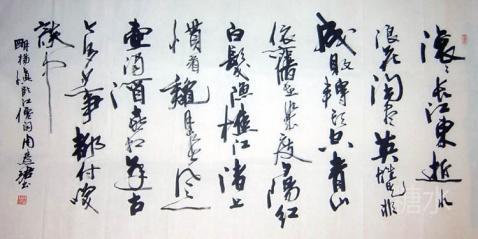 滚滚长江東逝水
浪花淘尽英雄是非
成败转头空青山
依舊在几度夕陽红
白髮渔樵江渚上
惯看龝月春风一
壶浊酒喜相逢古
今多少事都付笑
谈中
明楊慎临江仙词
塘水